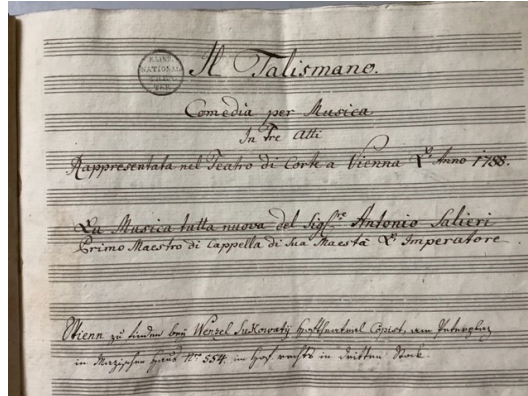 KAIS.
NATIONAL
THEA
TER
Il Talismano.
Comedia per Musica
In Tre Atti
Rappresentata nel Teatro di Corte a Vienna L'Anno 1788.
La Musica tutta nuova del Sigre Antonio Salieri
Primo Maestro di Cappella di Sua Maestà L'Imperatore.
Wienn zu finden bey Wenzel Sukowatÿ Hoftheatral Copist, am Petersplatz
im Hause Nro 554. im Hof rechts in dritten Stock.